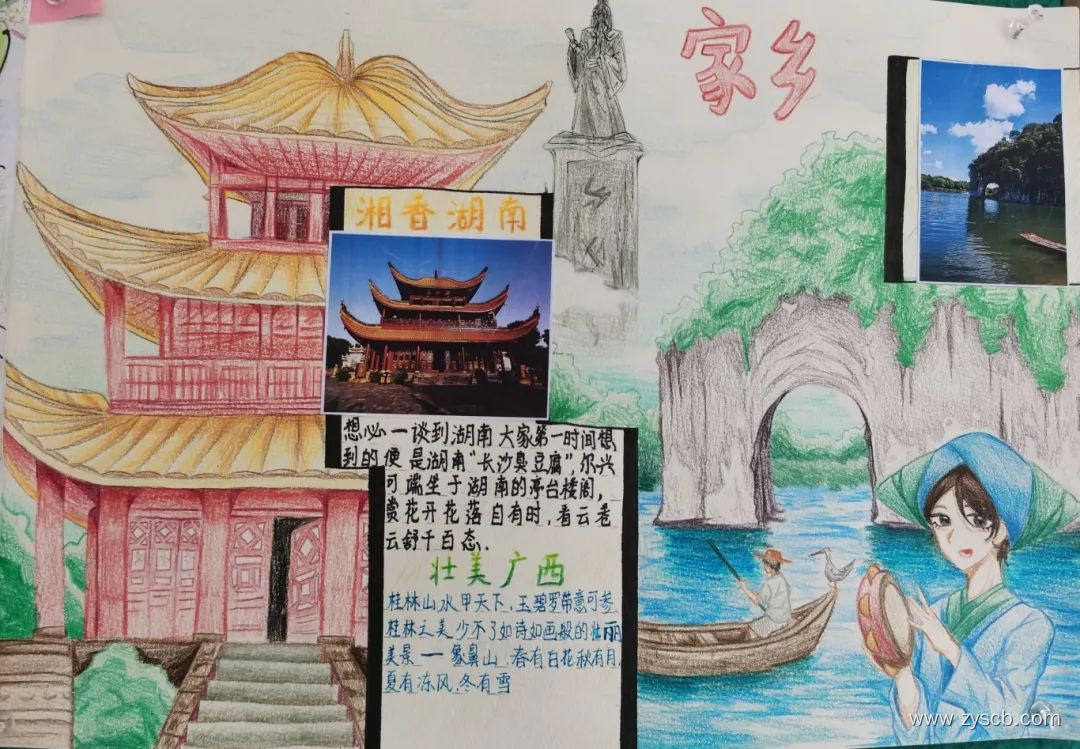 家乡
湘香湖南
想必一谈到湖南大家第一时间想
到的便是湖南"长沙臭豆腐",尔兴
可端坐于湖南的亭台楼阁,
赏花开花落自有时,看云卷
云舒千百态.
壮美广西
桂林山水甲天下,玉碧罗带意可参
桂林之美少不了如诗如画般的壮丽
美景一象鼻山,春有百花秋有月,
夏有凉风,冬有雪
www.zyscb.com